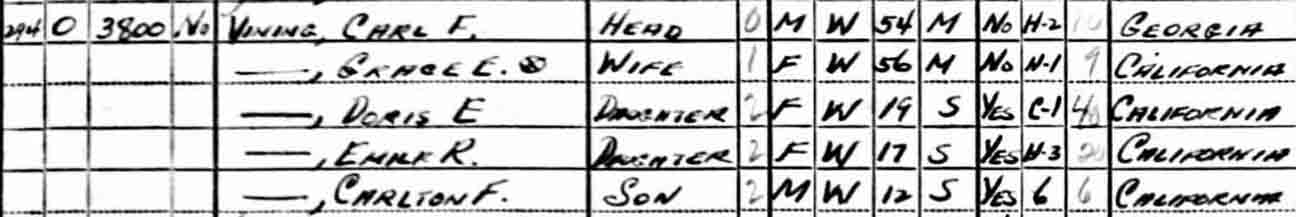 294 O 3800 No Vining, Carl F. Head 0 M W 54 M No H-2 10 Georgia
—, Grace E. ⓧ Wife 1 F W 56 M No H-1 9 California
—, Doris E Daughter 2 F W 19 S Yes C-1 40 California
—, R. Daughter 2 F W 17 S Yes H-3 20 California
—, Carlton F. Son 2 M W 12 S Yes 6 6 California